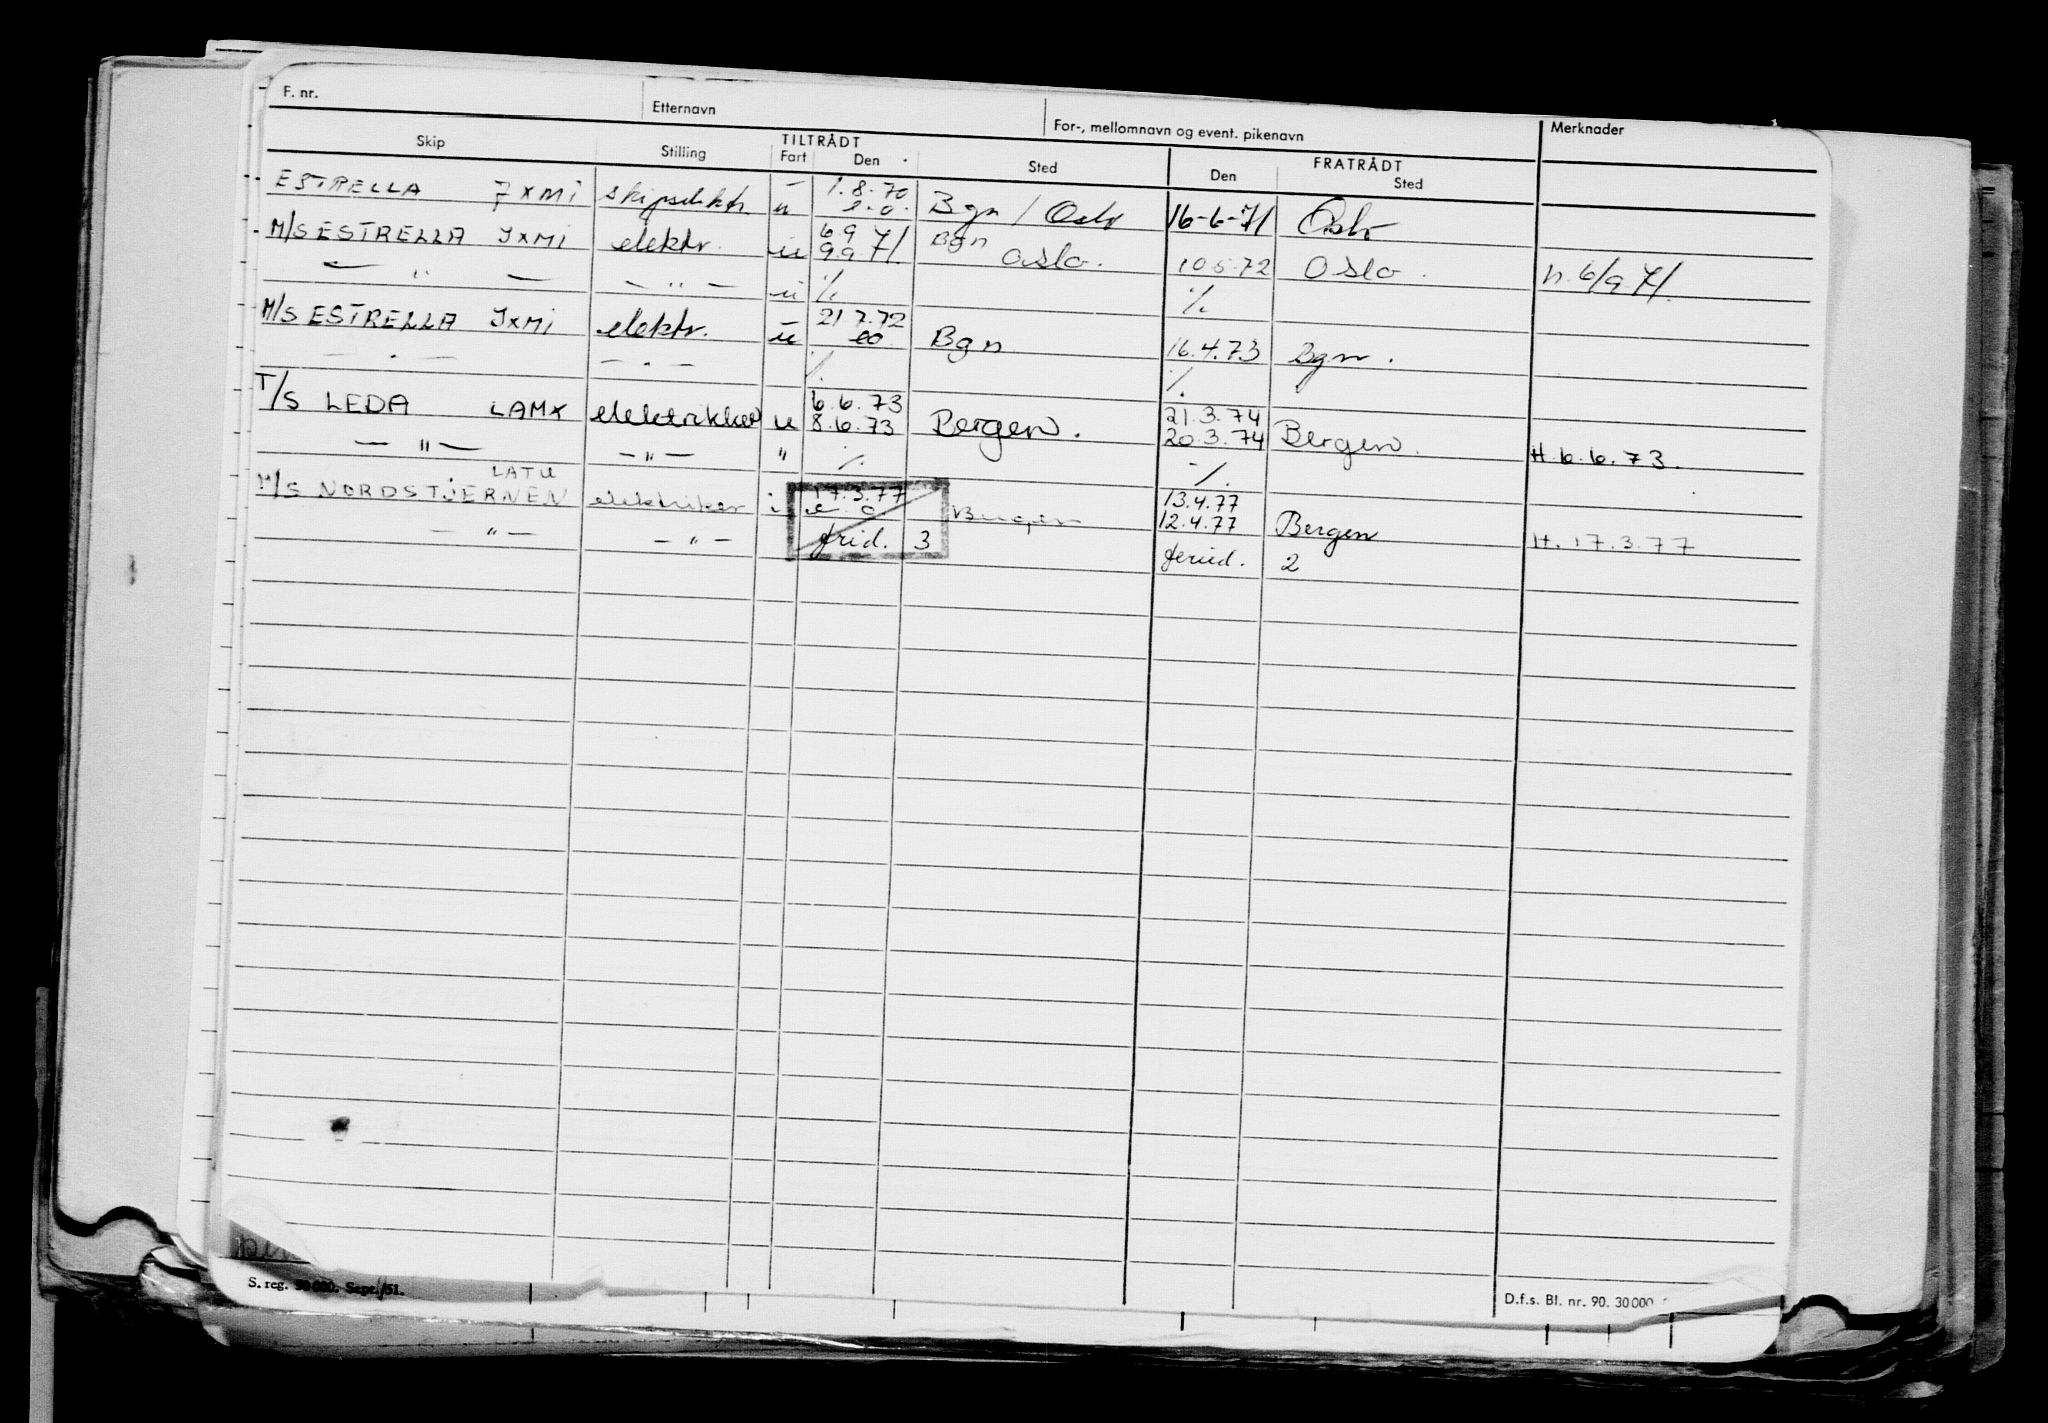 F. nr. Etternavn For-, mellomnavn og event. pikenavn Merknader
TILTRÅDT FRATRÅDT
Skip Stilling Fart Den Sted Den Sted
ESTRELLA JXMI skipselektr. u 1.8.70 Bgn / Oslo 16-6-71 Oslo
e.o.
M/S ESTRELLA JXMI elektr. u 6 9 71. Bgn 10 5.72 Oslo. n. 6/9 71.
9.9 Oslo.
— " — — " — u ./. ./.
M/S ESTRELLA JXMI elektr. u 21 7.72 Bgn 16.4.73 Bgn.
eo
— " — — " — ./. ./.
T/S LEDA LAMX elektrikker u 6.6.73 Bergen. 21.3.74 Bergen. H. 6.6.73.
8.6.73 20.3.74
— " — — " — " ./. ./.
LATU
M/S NORDSTJERNEN elektriker i 17.3.77 Bergen 13.4.77 Bergen H. 17.3.77
e.o. 12.4.77
— " — — " — frid. 3 feried. 2
S. reg. 50 000. Sept./51.
D.f.s. Bl. nr. 90. 30 000